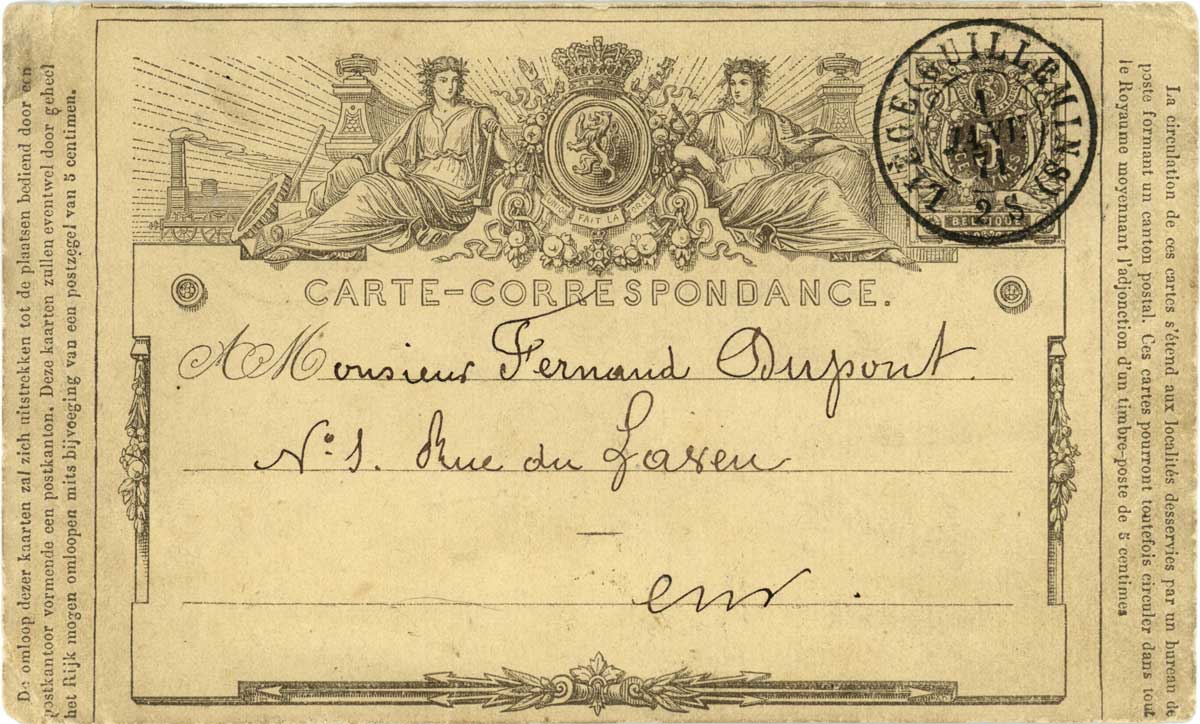 De omloop dezer kaarten zal zich uitstrekken tot de plaatsen bediend door een
postkantoor vormende een postkanton. Deze kaarten zullen eventwel door geheel
het Rijk mogen omloopen mits bijvoeging van een postzegel van 5 centimen.
L'UNION FAIT LA FORCE
LIÈGE (GUILLEMINS)
1
JANV
71
2 S
5
BELGIQUE
CARTE-CORRESPONDANCE.
A Monsieur Fernand Dupont.
N° 1. Rue du
La circulation de ces cartes s'étend aux localités desservies par un bureau de
poste formant un canton postal. Ces cartes pourront toutefois circuler dans tout
le Royaume moyennant l'adjonction d'un timbre-poste de 5 centimes